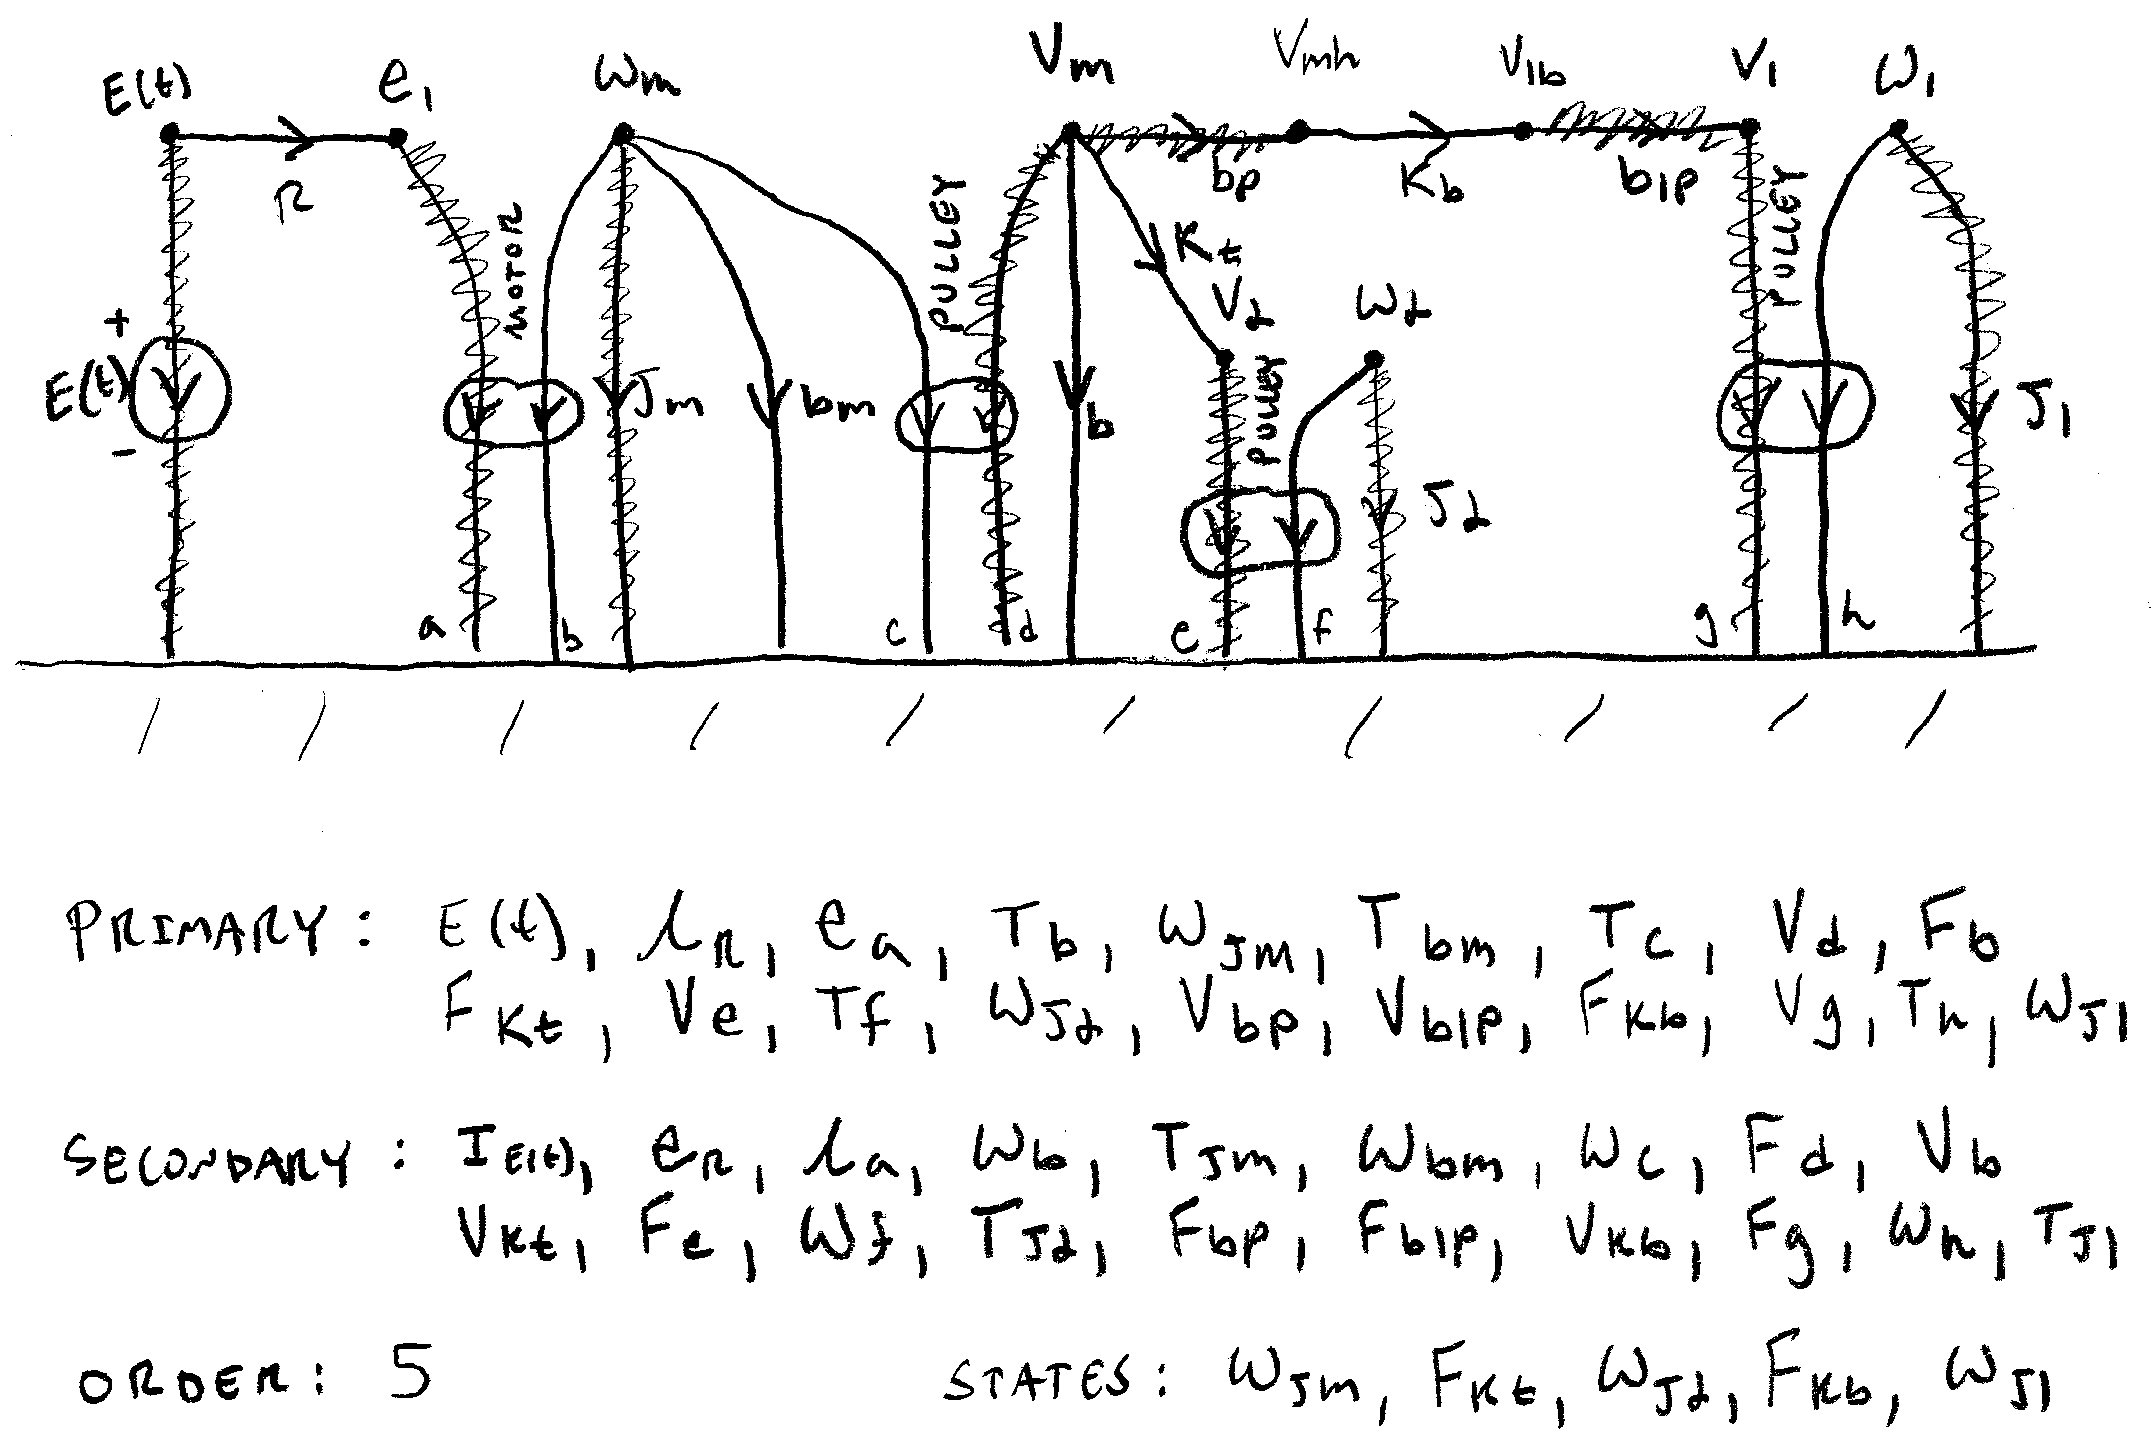 E(t) e1 ωm Vm Vmh V1b V1 ω1
R bp Kb b1p
MOTOR PULLEY Kt PULLEY
V2 ω2
+
E(t) Jm bm b PULLEY J1
-
J2
a b c d e f g h
PRIMARY: E(t), iR, ea, Tb, ωJm, Tbm, Tc, Vd, Fb
FKt, Ve, Tf, ωJ2, Vbp, Vb1p, FKb, Vg, Th, ωJ1
SECONDARY: IE(t), eR, ia, ωb, TJm, ωbm, ωc, Fd, Vb
VKt, Fe, ωf, TJ2, Fbp, Fb1p, VKb, Fg, ωh, TJ1
ORDER: 5 STATES: ωJm, FKt, ωJ2, FKb, ωJ1